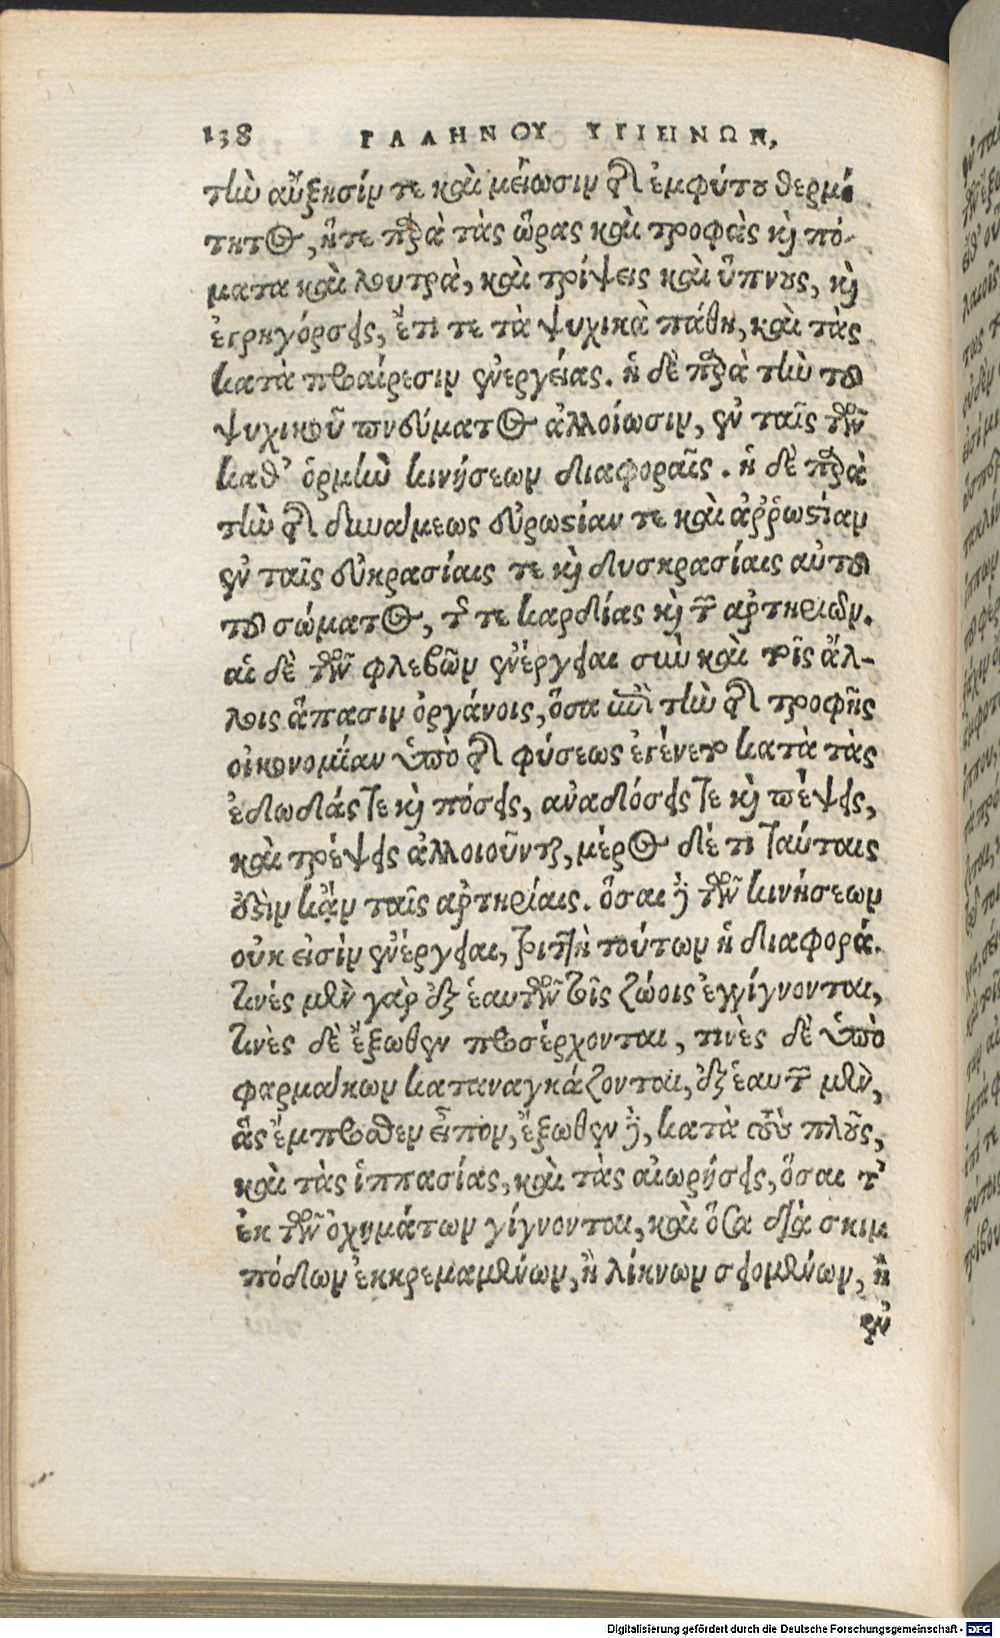 138 ΓΑΛΗΝΟΥ ΥΓΙΕΙΝΩΝ,
τὴν αὔξησίν τε καὶ μείωσιν τῆς ἐμφύτου θερμό
τητος, ἥτε παρὰ τὰς ὥρας καὶ τροφὰς καὶ πό-
ματα καὶ λουτρὰ, καὶ τρίψεις καὶ ὕπνους, καὶ
ἐγρηγόρσεις, ἔτι τε τὰ ψυχικὰ πάθη, καὶ τὰς
κατὰ προαίρεσιν ἐνεργείας. ἡ δὲ παρὰ τὴν τοῦ
ψυχικοῦ πνεύματος ἀλλοίωσιν, ἐν ταῖς τῶν
καθ' ὁρμὴν κινήσεων διαφοραῖς. ἡ δὲ παρὰ
τὴν τῆς δυνάμεως εὐρωστίαν τε καὶ ἀῤῥωστίαν
ἐν ταῖς εὐκρασίαις τε καὶ δυσκρασίαις αὐτοῦ
τοῦ σώματος, τῆς τε καρδίας καὶ τῶν ἀρτηριῶν.
αἱ δὲ τῶν φλεβῶν ἐνέργειαι σὺν καὶ τοῖς ἄλ-
λοις ἅπασιν ὀργάνοις, ὅσα κατὰ τὴν τῆς τροφῆς
οἰκονομίαν ὑπὸ τῆς φύσεως ἐγένετο κατὰ τὰς
ἐδωδάς τε καὶ πόσεις, ἀναδόσεις τε καὶ πέψεις,
καὶ τρέψεις ἀλλοιοῦνται, μέρος δέ τι ταύταις
ἐστὶν κἀν ταῖς ἀρτηρίαις. ὅσαι δὲ τῶν κινήσεων
οὐκ εἰσὶν ἐνέργειαι, τριττὴ τούτων ἡ διαφορά.
τινὲς μὲν γὰρ ἐξ ἑαυτῶν τοῖς ζώοις ἐγγίγνονται,
τινὲς δὲ ἔξωθεν προσέρχονται, τινὲς δὲ ὑπὸ
φαρμάκων καταναγκάζονται, ἐξ ἑαυτῶν μὲν,
ἃς ἔμπροσθεν εἶπον, ἔξωθεν δὲ, κατὰ τοὺς πλοῦς,
καὶ τὰς ἱππασίας, καὶ τὰς αἰωρήσεις, ὅσαι τε
ἐκ τῶν ὀχημάτων γίγνονται, καὶ ὅσα διὰ σκιμ
πόδων ἐκκρεμαμένων, ἢ λίκνων σειομένων, ἢ
ἐν
Digitalisierung gefördert durch die Deutsche Forschungsgemeinschaft - DFG